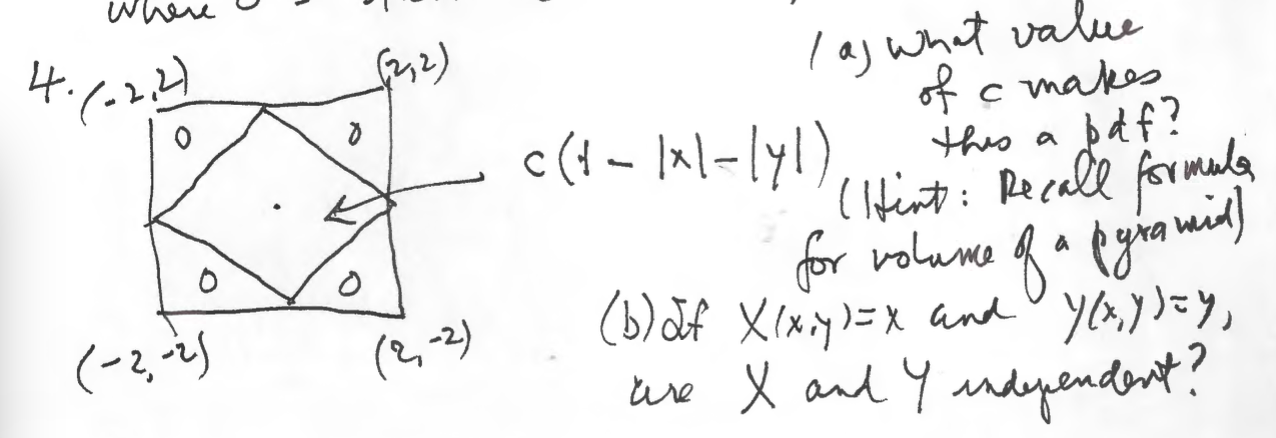 where
4. (-2,2) (2,2)
0 0
0 0
(-2,-2) (2,-2)
c(1 - |x| - |y|)
(a) what value
of c makes
this a pdf?
(Hint: Recall formula
for volume of a pyramid)
(b) If X(x,y)=x and Y(x,y)=y,
are X and Y independent?